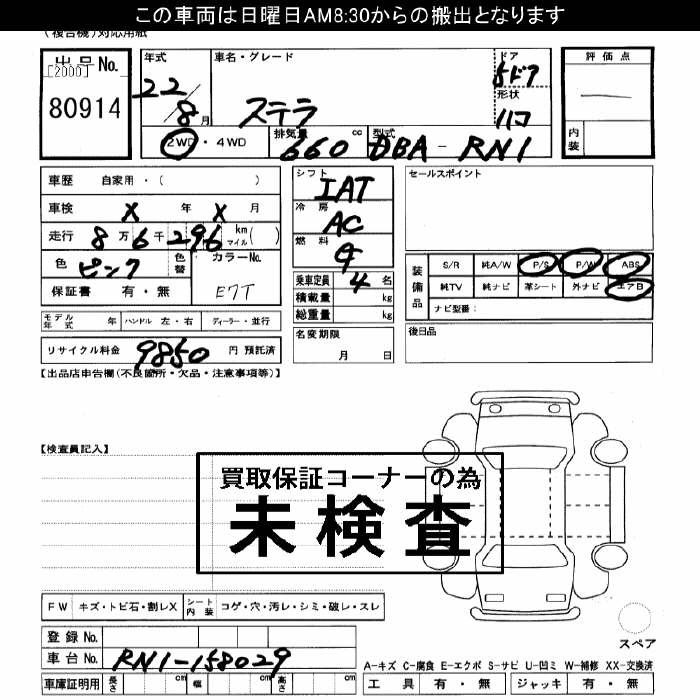 この車両は日曜日AM8:30からの搬出となります
(複合機)対応用紙
出品No.
[2000]
80914
年式
22/8月
車名・グレード
ステラ
ドア
5ドア
形状
ハコ
評価点
内装
2WD・4WD
排気量
660
cc
型式
DBA-RN1
車歴 自家用・( )
車検 X 年 X 月
走行 8万6千296 km マイル( )
色 ピンク 色替
カラーNo.
E7T
保証書 有・無
シフト
IAT
冷房
AC
燃料
G
乗車定員 4 名
積載量 kg
総重量 kg
名変期限
月 日
セールスポイント
装備品
S/R 純A/W P/S P/W ABS
純TV 純ナビ 革シート 外ナビ エアB
ナビ型番:
後日品
モデル年式 年 ハンドル 左・右 ディーラー・並行
リサイクル料金 9850 円 預託済
【出品店申告欄(不良箇所・欠品・注意事項等)】
【検査員記入】
買取保証コーナーの為
未検査
FW キズ・トビ石・割レX シート内装 コゲ・穴・汚レ・シミ・破レ・スレ
登録No.
車台No. RN1-158029
車庫証明用 長さ cm 幅 cm 高さ cm
スペア
A-キズ C-腐食 E-エクボ S-サビ U-凹ミ W-補修 XX-交換済
工具 有・無 ジャッキ 有・無